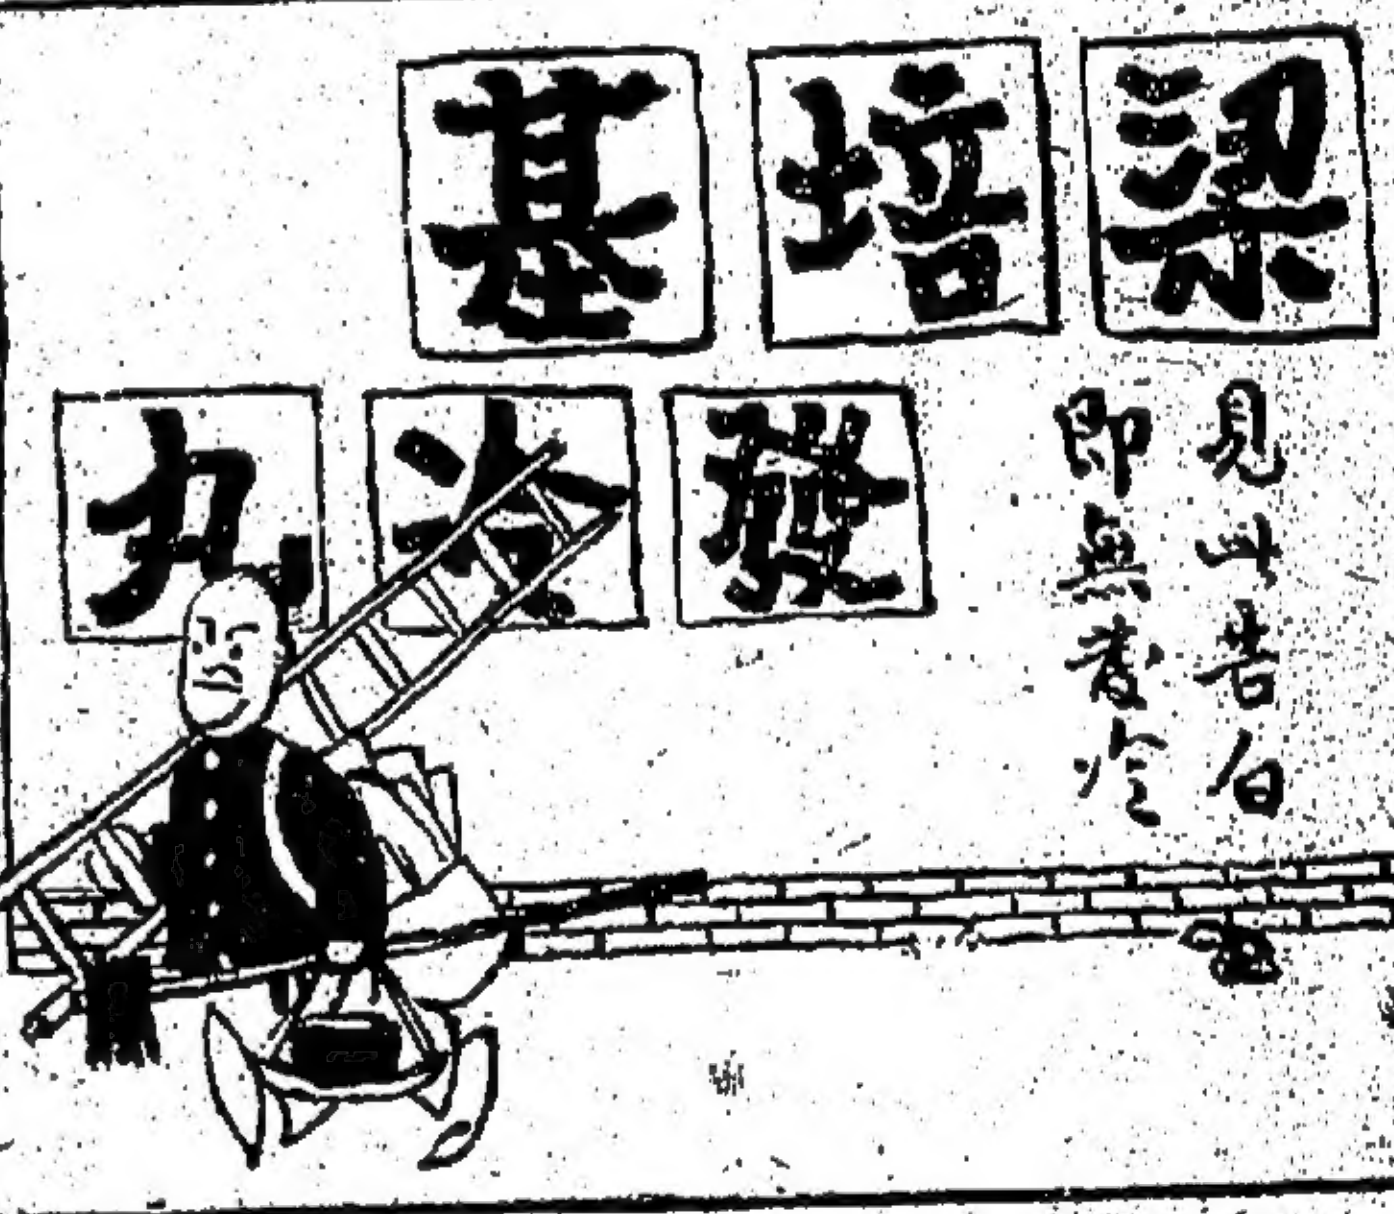 梁培基
發冷丸
見此告白
即無發冷